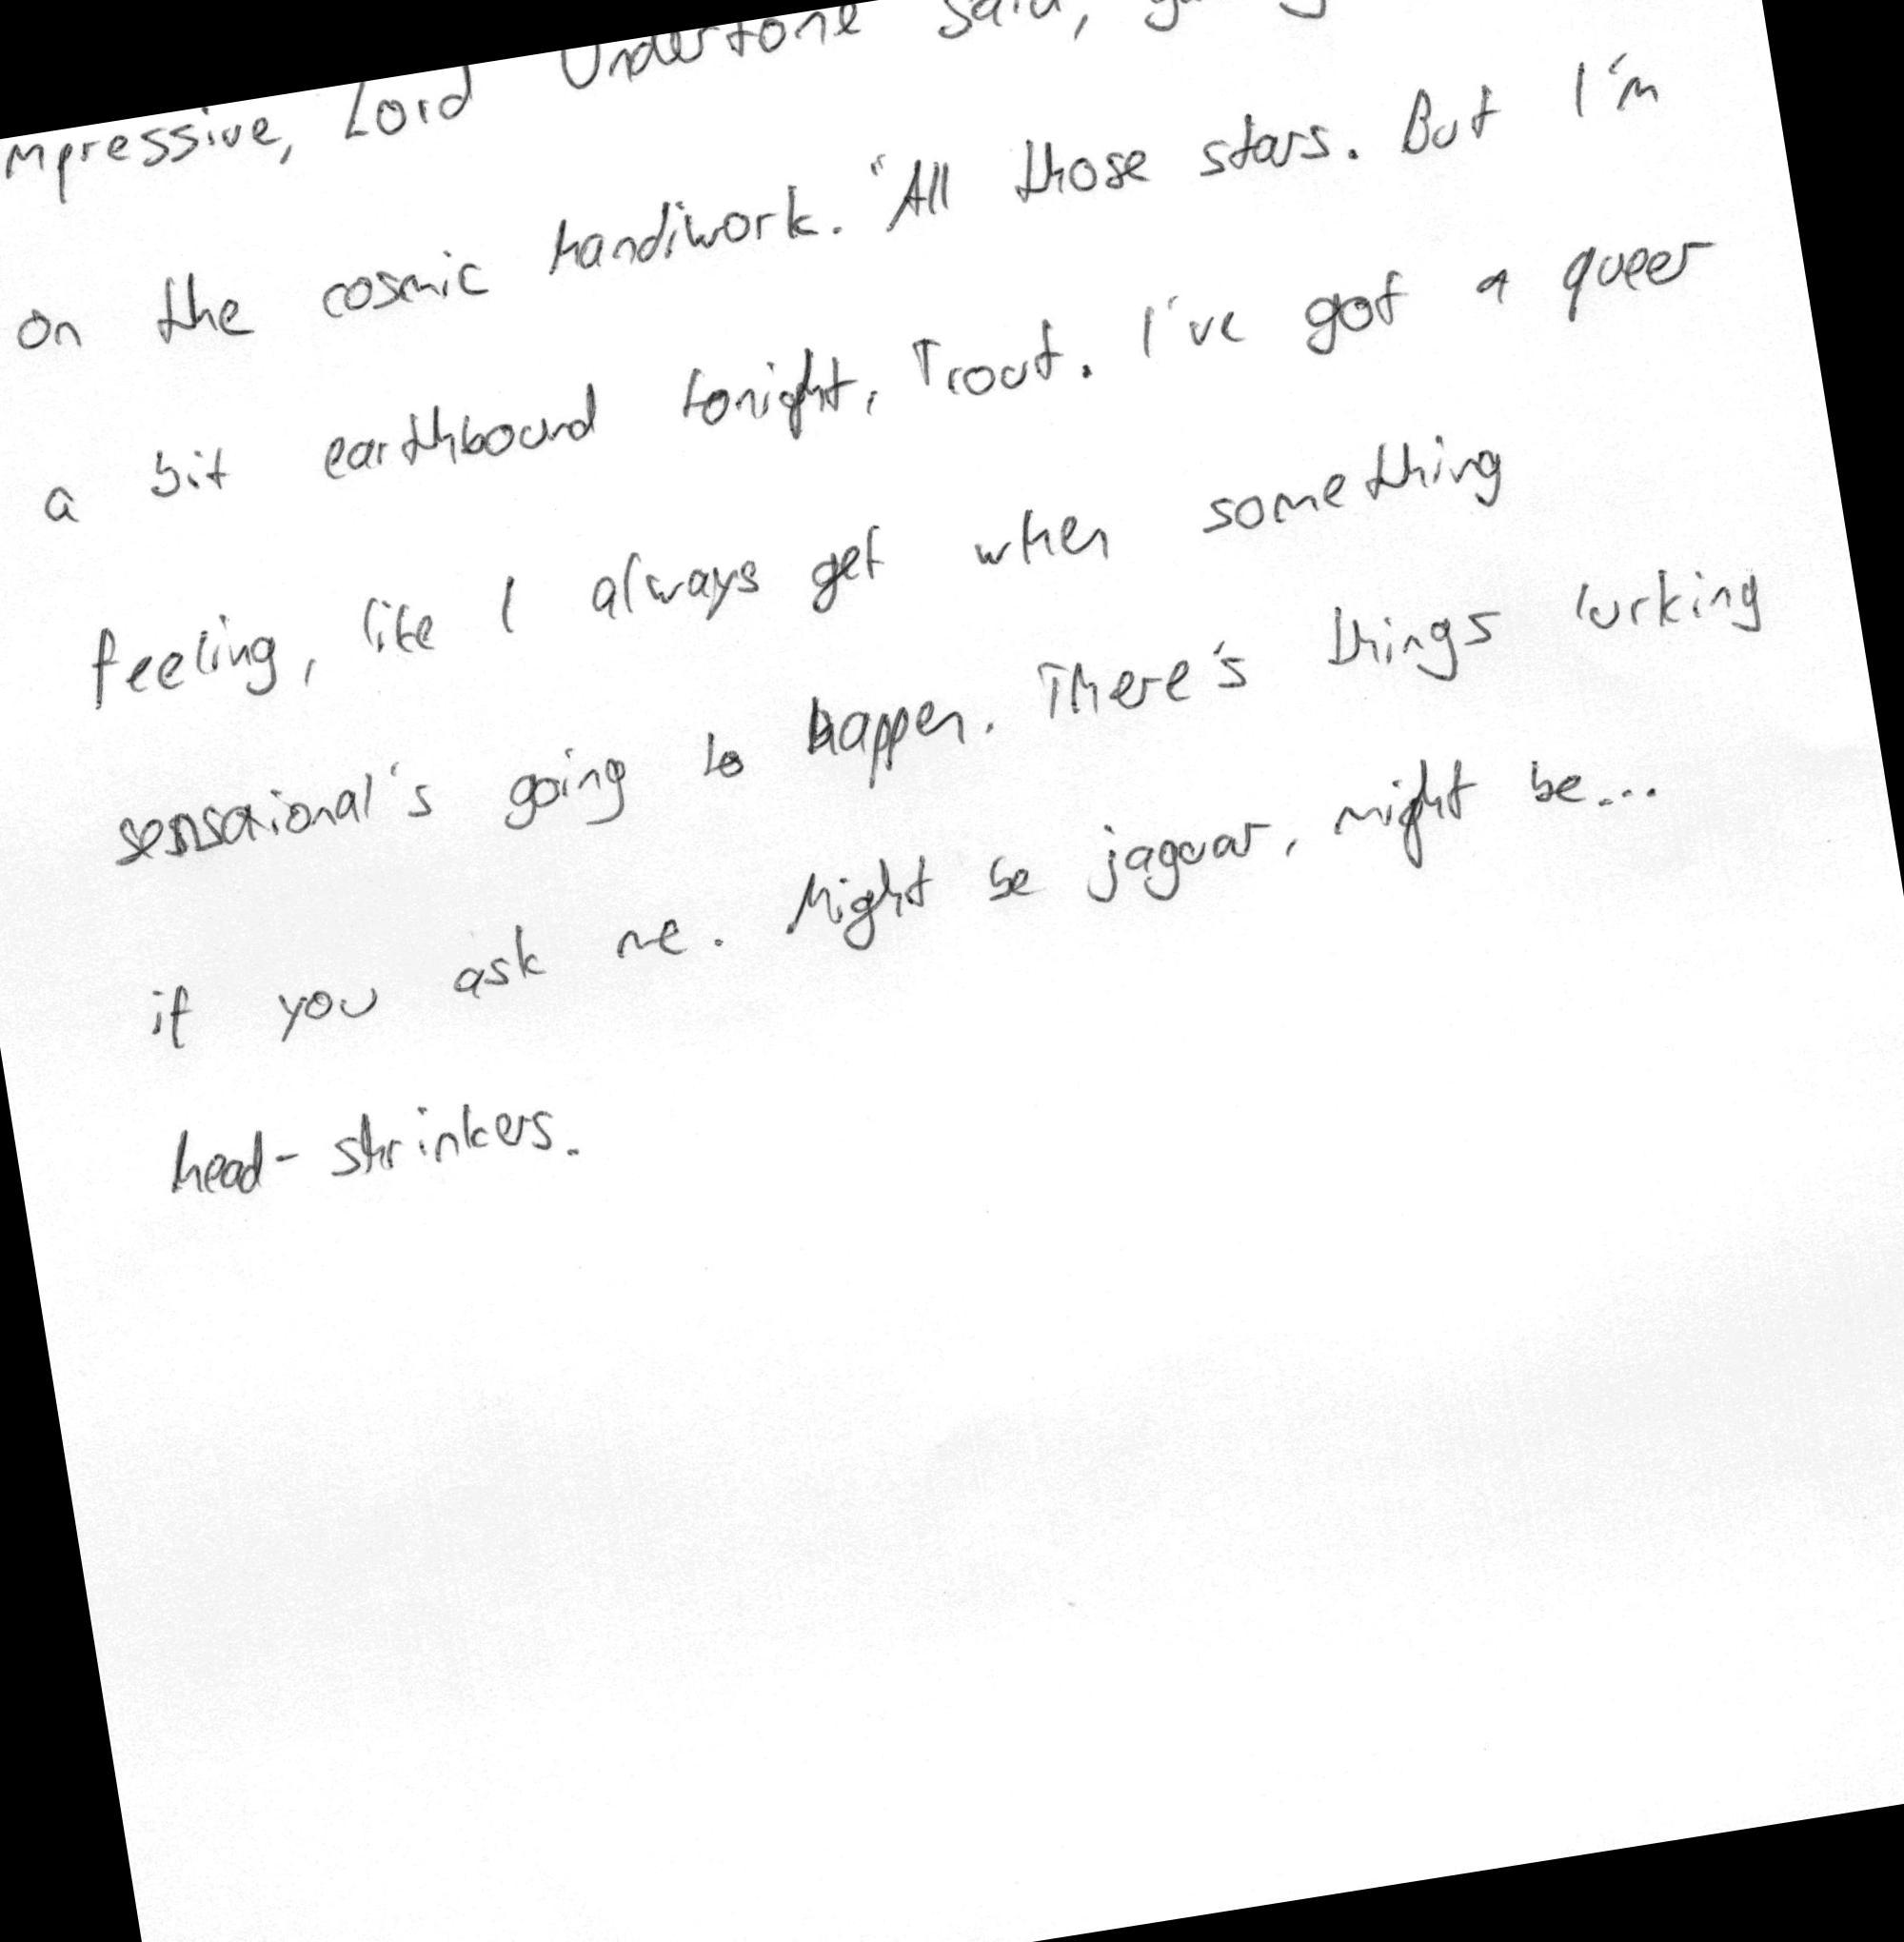 mpressive, Lord Undertone said,
on the cosmic handiwork. "All those stars. But I'm
a bit earthbound tonight, Trout. I've got a queer
feeling, like I always get when something
sensaional's going to happen. There's things lurking
if you ask me. Might be jaguar, might be...
head-shrinkers.